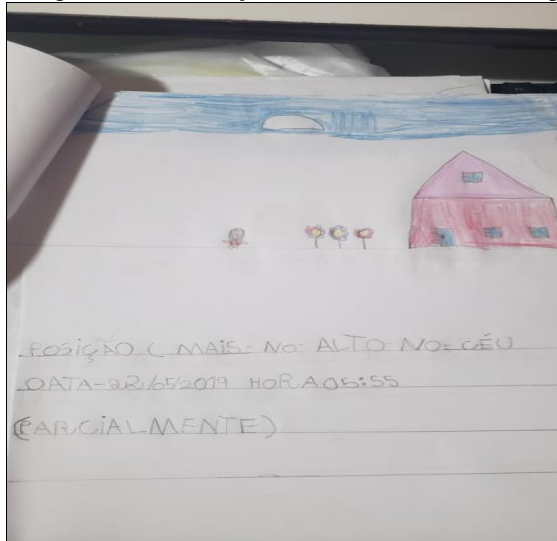 POSIÇÃO ( MAIS- NO- ALTO- NO- CÉU
DATA-22/05/2019 HORA05:55
(PARCIALMENTE)